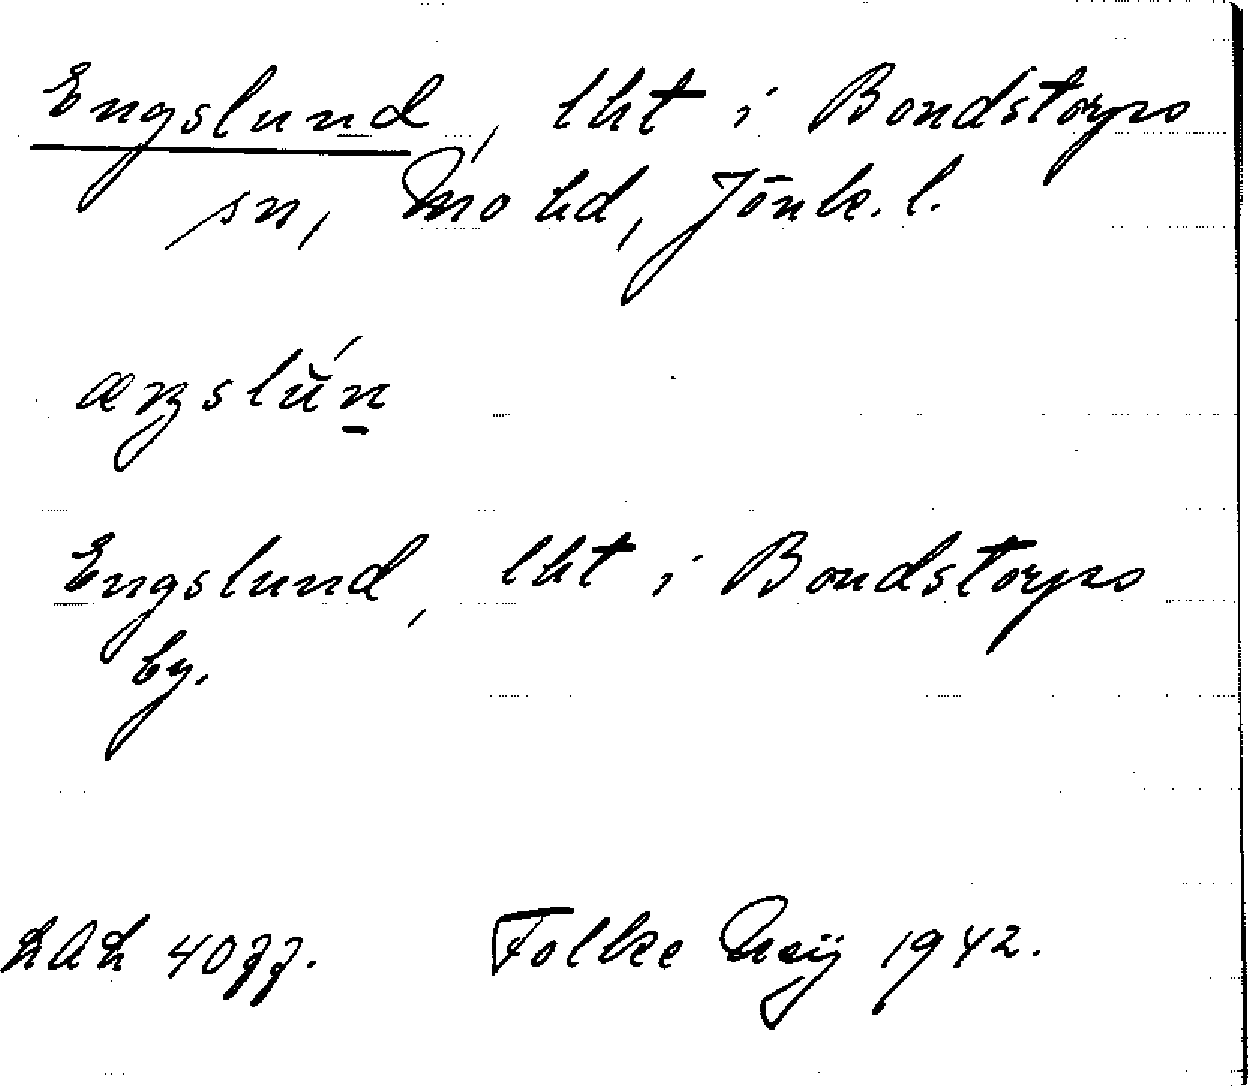 Engslund, lht i Bondstorps
sn, Mo hd, Jönk. l.
æŋslŭ́n
Engslund, lht i Bondstorps
by.
Folke 1942.